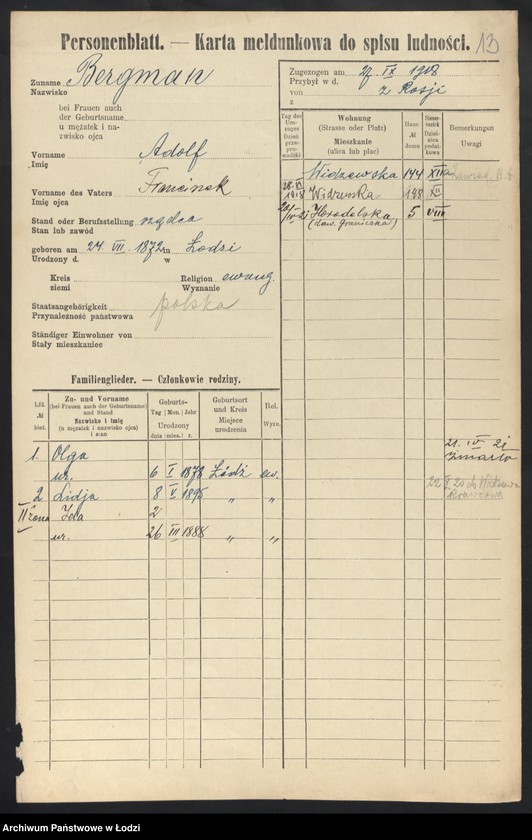 Personenblatt. — Karta meldunkowa do spisu ludności.
13
Zuname Bergman
Nazwisko
bei Frauen auch
der Geburtsname
u mężatek i na-
zwisko ojca
Vorname Adolf
Imię
Vorname des Vaters Franciszek
Imię ojca
Stand oder Berufsstellung rządca
Stan lub zawód
geboren am 24. VII. 1872 in Łodzi
Urodzony d. w
Kreis
ziemi
Religion ewang.
Wyznanie
Staatsangehörigkeit polska
Przynależność państwowa
Ständiger Einwohner von
Stały mieszkaniec
Zugezogen am 27 IX 1908
Przybył w d.
von z Rosji
z
Tag des Um-zuges
Dzień prze-pro-wadzki
Wohnung
(Strasse oder Platz)
Mieszkanie
(ulica lub plac)
Haus-№
domu
Bemerkungen
Uwagi
Widzewska 144 XII
1918 Widzewska 148 XII
Horodelska 5 VIII
(daw. Graniczna)
Familienglieder. — Członkowie rodziny.
Lfd. №
bież.
Zu- und Vorname
(bei Frauen auch der Geburtsname)
und Stand
Nazwisko i imię
(u mężatek i nazwisko ojca)
i stan
Geburts-
Tag | Mon. | Jahr
Urodzony
dnia | mies. | r.
Geburtsort
und Kreis
Miejsce
urodzenia
Rel.
Wyzn.
1. Olga
ur. 6 I 1878 Łódź ew.
21. IV 21
zmarła
2 Lidja 8 V 1895 „ „
II żona
ur. 26 III 1888 „ „
Archiwum Państwowe w Łodzi